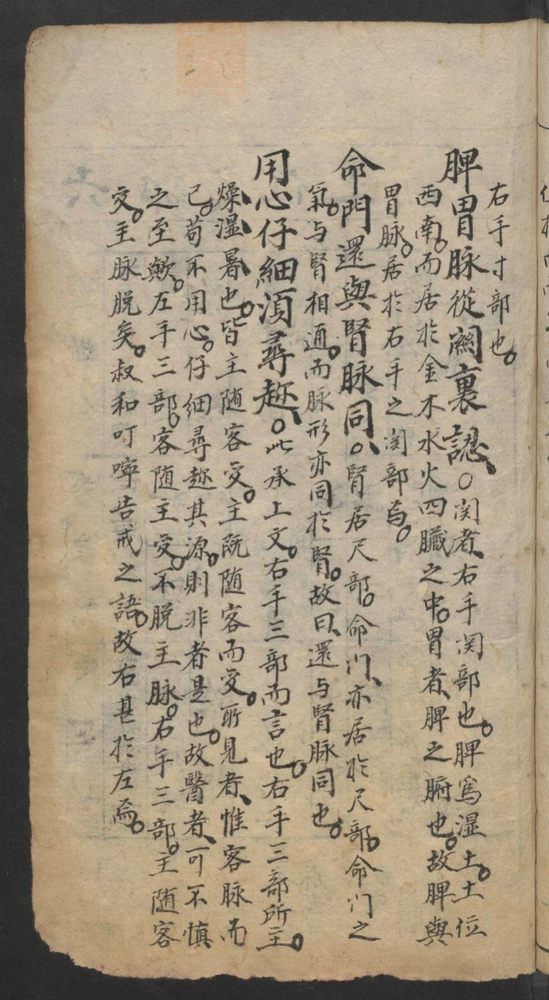 右手寸部也。
脾胃脉從闗裏認、〇関者、右手関部也。脾爲濕土。土位
西南。而居於金木水火四臓之中。胃者、脾之腑也。故脾與
胃脉、居於右手之関部焉。
命門還與腎脉同。〇腎居尺部。命门、亦居於尺部。命门之
氣。与腎相通。而脉形亦同於腎。故曰、還与腎脉同也。
用心仔細湏尋趂、〇此承上文。右手三部而言也。右手三部所主。
燥、濕、暑也。皆主随客变。主既随客而变。所見者、惟客脉而
已。苟不用心。仔细尋趂其源。則非者是也。故醫者、可不慎
之至歟。左手三部。客随主变。不脱主脉。右手三部。主随客
变。主脉脱矣。叔和叮嚀告戒之語。故右甚於左焉。